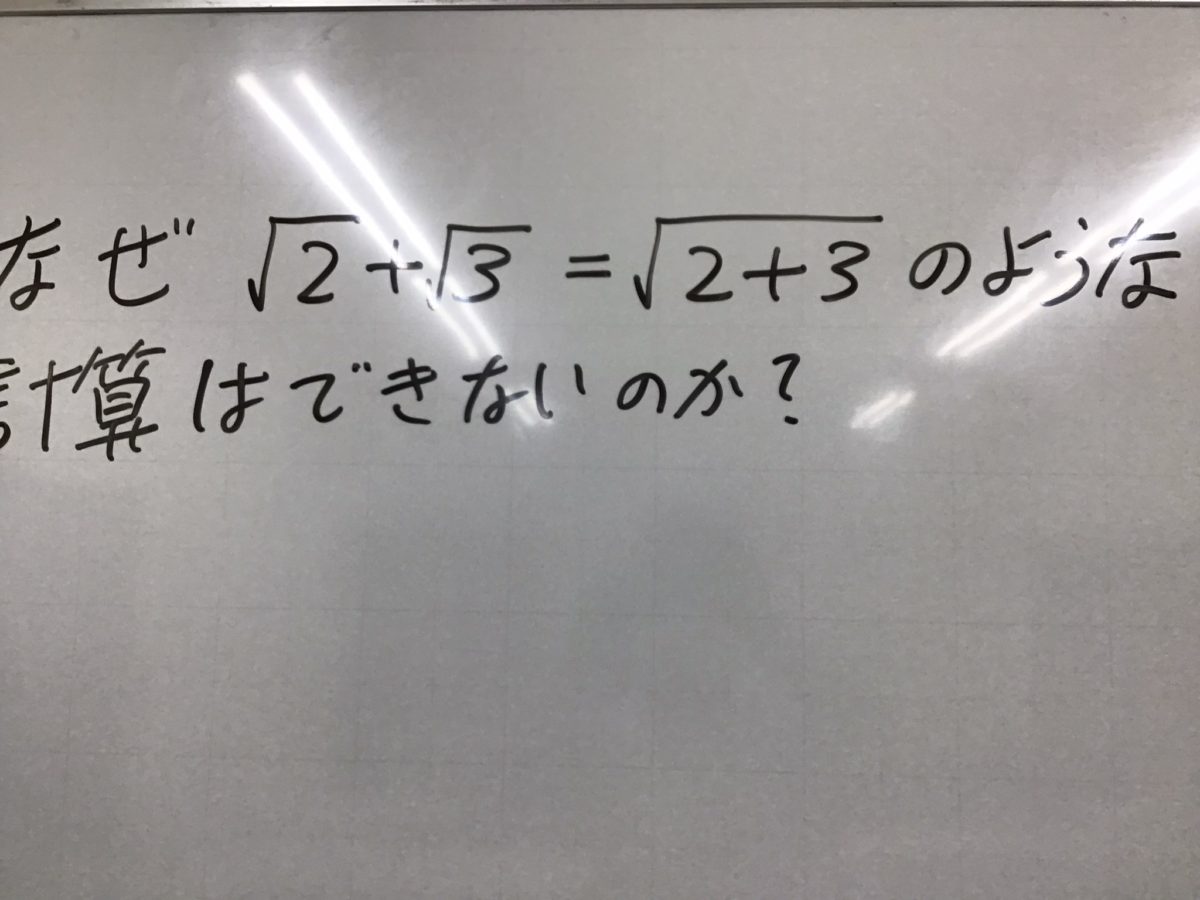 なぜ √2+√3 = √(2+3) のような
計算はできないのか?